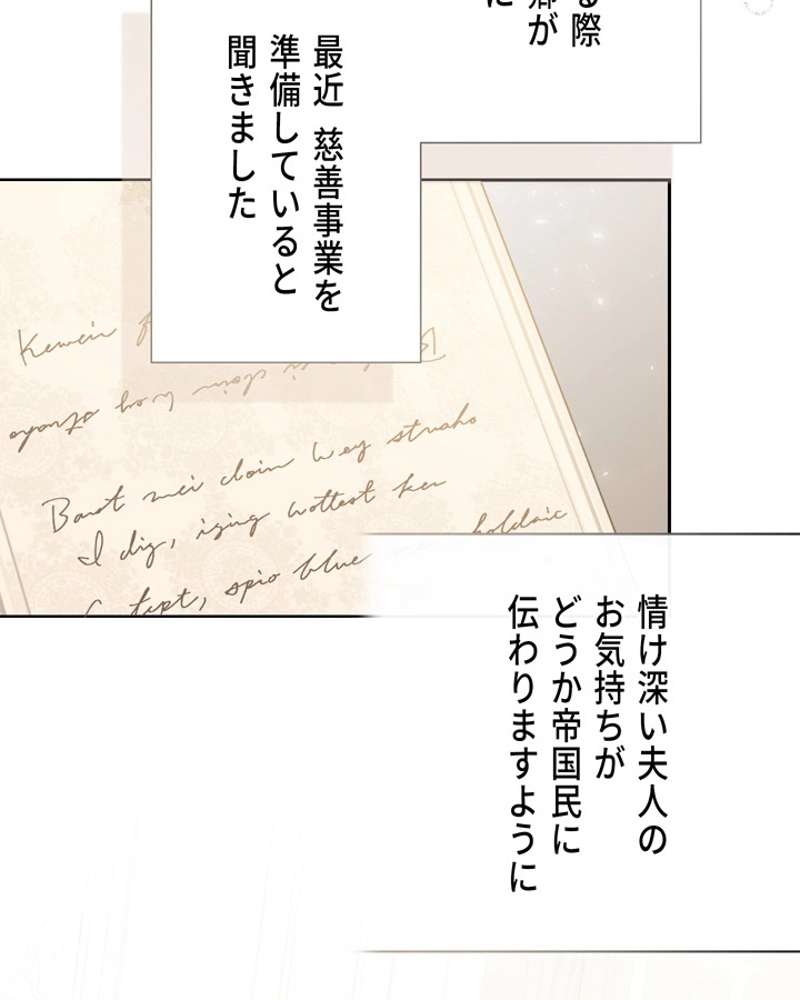 る際
卿が
に
最近 慈善事業を
準備していると
聞きました
Kewein
Baust mei cloin wey struaho
I dig, iging wottest ken
spio blue
holdaic
情け深い夫人の
お気持ちが
どうか帝国民に
伝わりますように